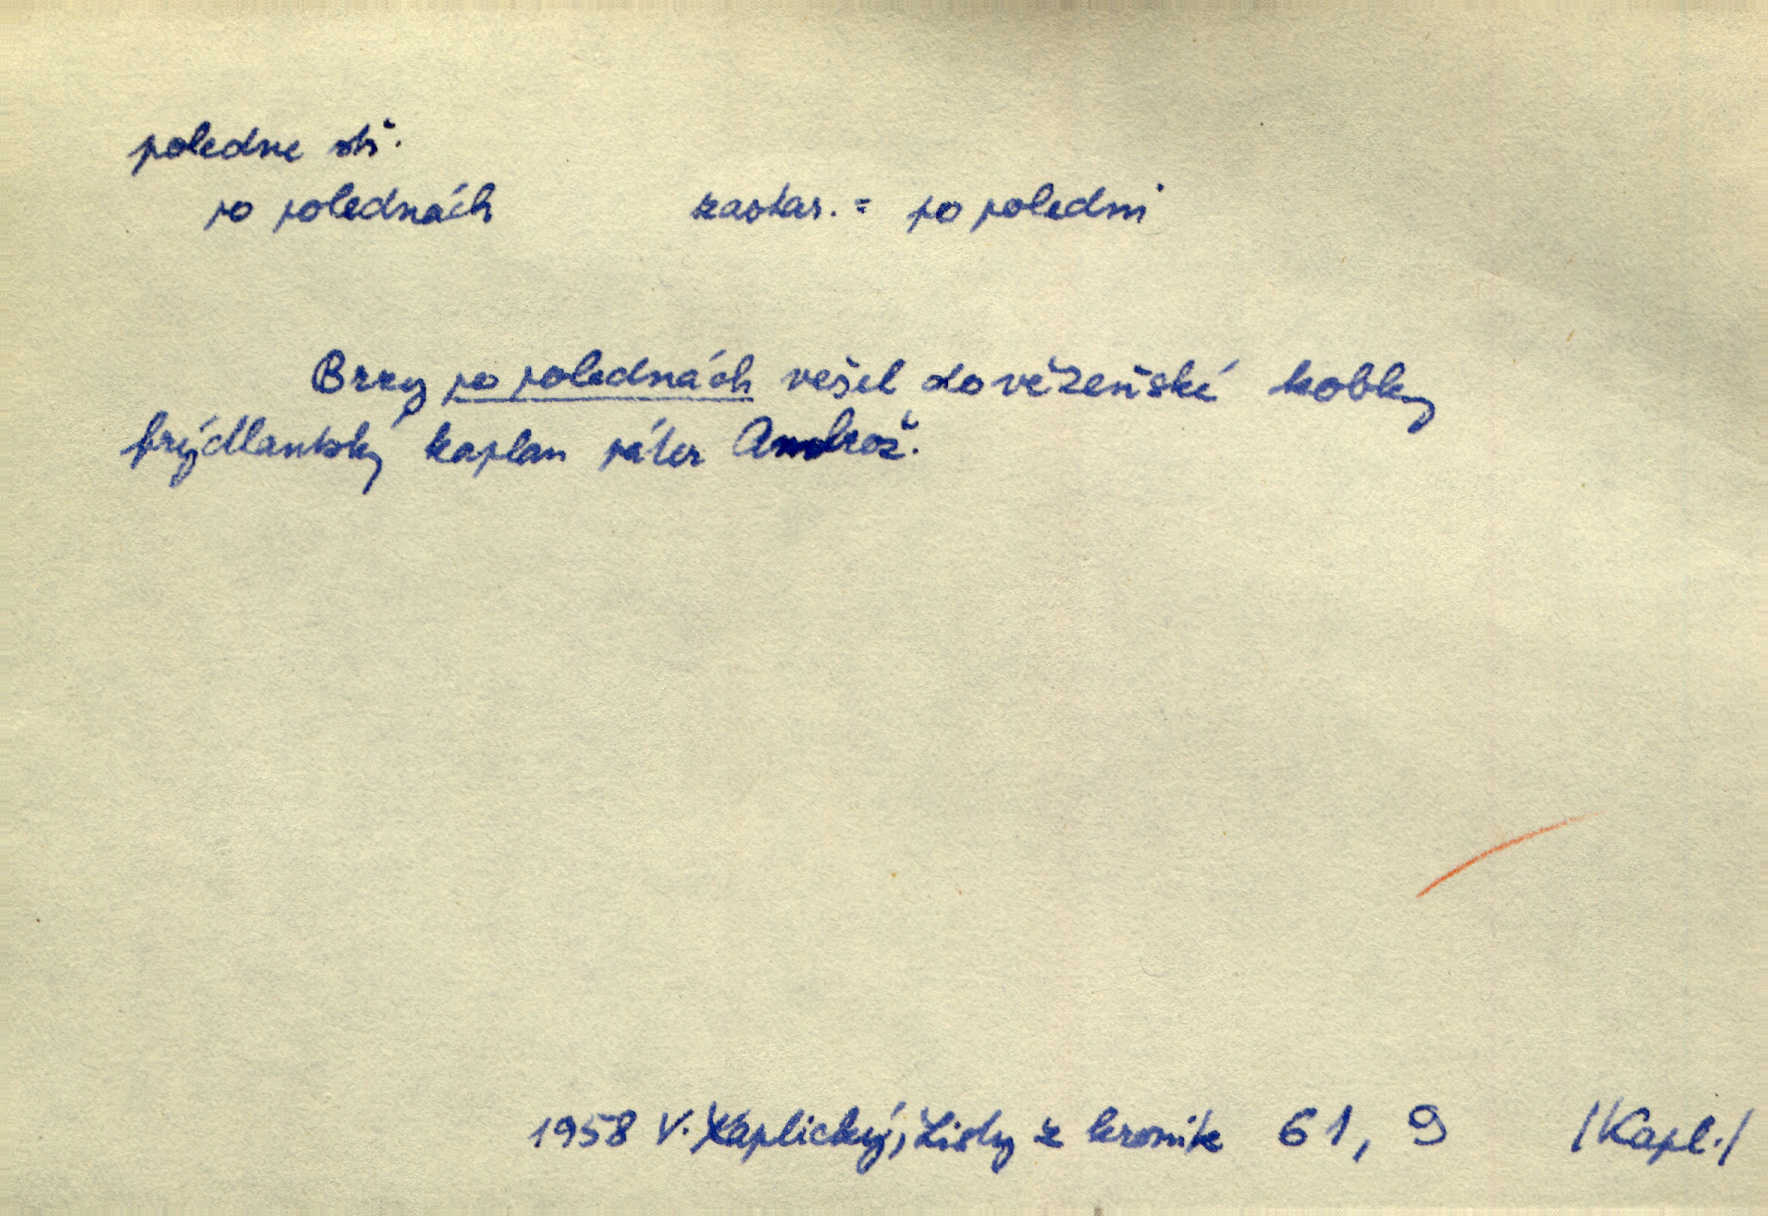 poledne stř.
po polednách zastar. = po poledni
Brzy po polednách vešel do vězeňské kobky
frýdlantský kaplan páter Androž.
1958 V. Kaplický, Listy z kronik 61, 9 /Kapl./